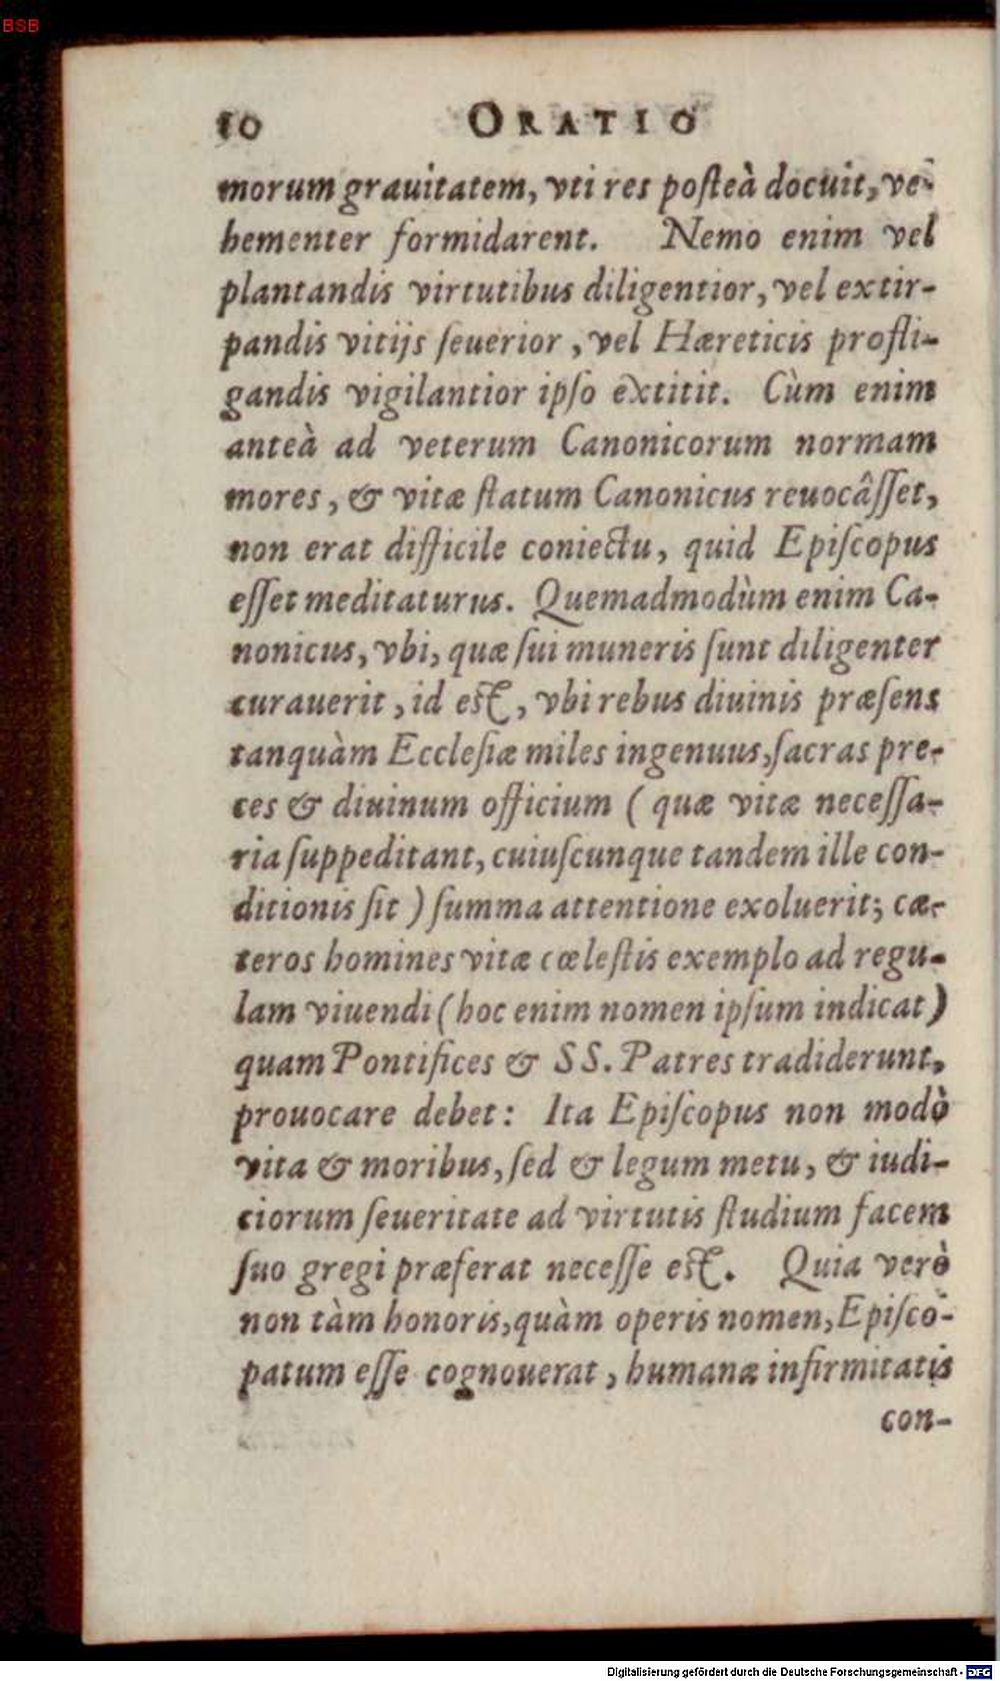 BSB
10 ORATIO
morum grauitatem, vti res posteà docuit, ve-
hementer formidarent. Nemo enim vel
plantandis virtutibus diligentior, vel extir-
pandis vitijs ſeuerior, vel Hæreticis profli-
gandis vigilantior ipſo extitit. Cùm enim
anteà ad veterum Canonicorum normam
mores, & vitæ ſtatum Canonicus reuocâſſet,
non erat difficile coniectu, quid Epiſcopus
eſſet meditaturus. Quemadmodùm enim Ca-
nonicus, vbi, quæ ſui muneris ſunt diligenter
curauerit, id eſt, vbi rebus diuinis præſens
tanquàm Eccleſiæ miles ingenuus, ſacras pre-
ces & diuinum officium ( quæ vitæ neceſſa-
ria ſuppeditant, cuiuſcunque tandem ille con-
ditionis ſit ) ſumma attentione exoluerit; cæ-
teros homines vitæ cœleſtis exemplo ad regu-
lam viuendi ( hoc enim nomen ipſum indicat )
quam Pontifices & SS. Patres tradiderunt,
prouocare debet: Ita Epiſcopus non modò
vita & moribus, ſed & legum metu, & iudi-
ciorum ſeueritate ad virtutis ſtudium facem
ſuo gregi præferat neceſſe eſt. Quia verò
non tàm honoris, quàm operis nomen, Epiſco-
patum eſſe cognouerat, humanæ infirmitatis
con-
Digitalisierung gefördert durch die Deutsche Forschungsgemeinschaft - DFG